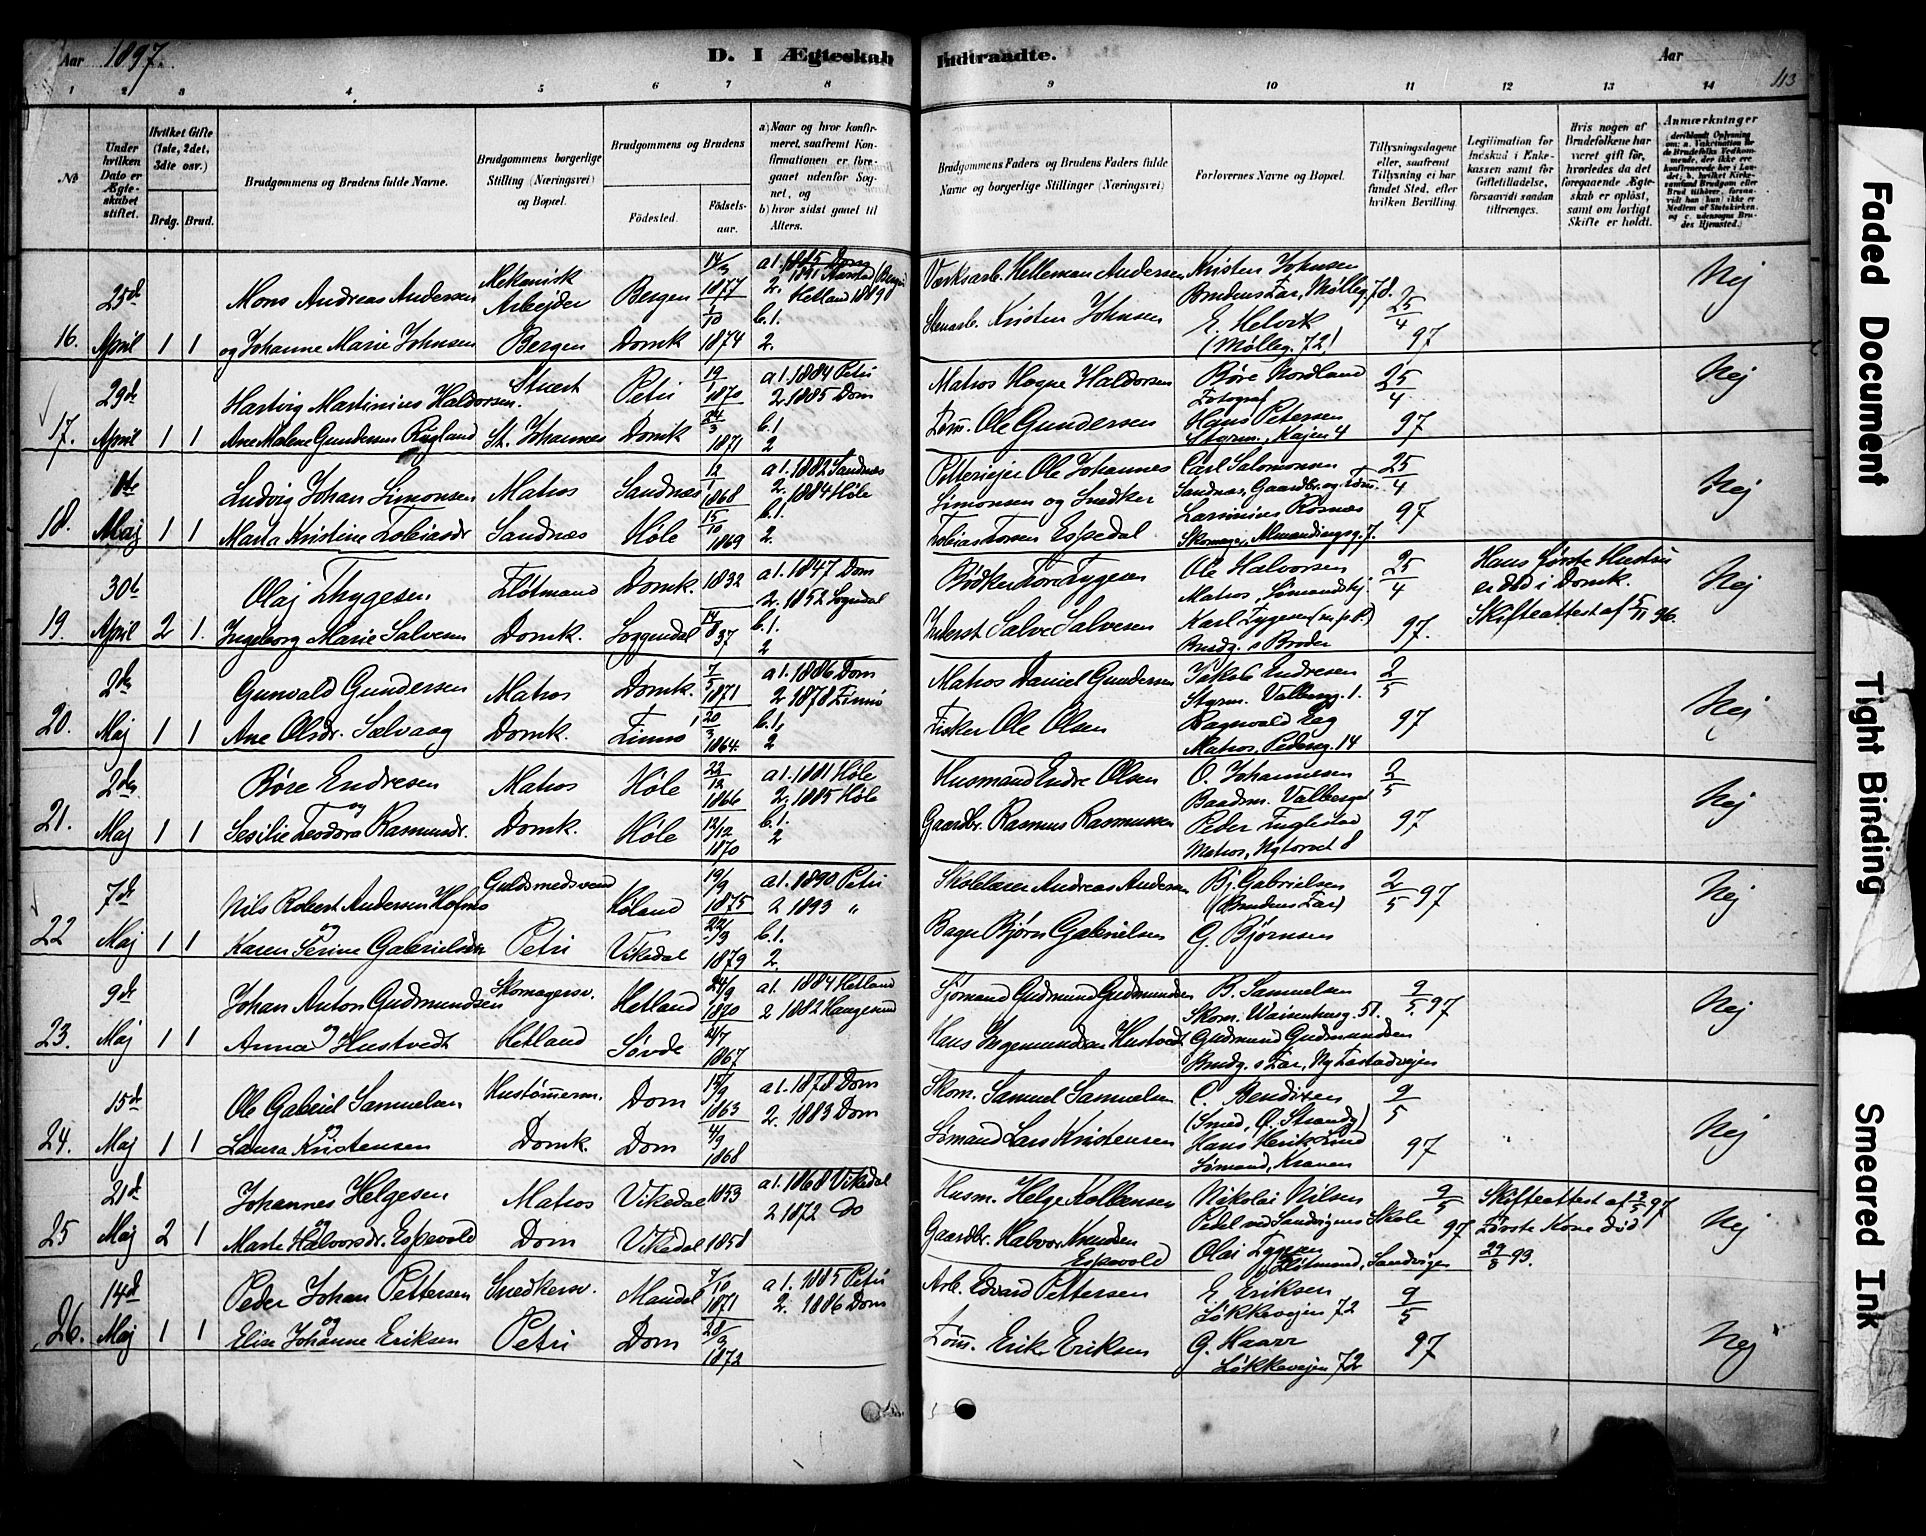 Aar 1897.
D. I Ægteskab Indtraadte.
Aar
113
1 2 3 4 5 6 7 8 9 10 11 12 13 14
No
Under hvilken Dato er Ægteskabet stiftet.
Hvilket Gifte (1ste, 2det, 3die osv.)
Brdg. Brud.
Brudgommens og Brudens fulde Navne.
Brudgommens borgerlige Stilling (Næringsvei) og Bopæl.
Brudgommens og Brudens
Fødested. Fødselsaar.
a) Naar og hvor konfirmeret, saafremt Konfirmationen er foregaaet udenfor Sognet, og
b) hvor sidst gaaet til Alters.
Brudgommens Faders og Brudens Faders fulde Navne og borgerlige Stillinger (Næringsvei)
Forlovernes Navne og Bopæl.
Tillysningsdagene eller, saafremt Tillysning ei har fundet Sted, efter hvilken Bevilling.
Legitimation for Indskud i Enkekassen samt for Giftetilladelse, forsaavidt saadan tiltrænges.
Hvis nogen af Brudefolkene har været gift før, hvorledes da det foregaaende Ægteskab er opløst, samt om lovligt Skifte er holdt.
Anmærkninger
16. 25de April 1 1
Mons Andreas Andersen
og Johanne Marie Johnsen
Mekanisk Arbejder
Bergen
Bergen 14/3 1877
Domk 1/10 1874
a 1. 1891 Aarstad (Bergen)
2. Hetland 1889
b. 1.
2.
Værksarb. Helleman Andersen
Stenarb. Kristen Johnsen
Kristen Johnsen
Brudens Far, Mølleg. 78.
E. Helvik
(Mølleg. 72)
25/4 97
Nej
17. 29de April 1 1
Hartvig Martinius Haldorsen.
Ane Malene Gundersen Rygland
Stuert
St. Johannes
Petri 19/1 1870
Domk 24/3 1871
a 1. 1884 Petri
2. 1885 Dom
b. 1.
2
Matros Hagne Haldorsen
Tøm. Ole Gundersen
Børe Nordland
Fotograf
Hans Petersen
Styrm., Kajen 4
25/4 97
Nej
18. 1ste Maj 1 1
Ludvig Johan Simonsen
Marta Kristine Tobiasdr
Matros
Sandnæs
Sandnæs 12/1 1868
Høle 15/10 1869
a 1. 1882 Sandnæs
2. 1884 Høle
b. 1.
2.
Pottериejer Ole Johannes
Simonsen og Snedker
Tobias Torsen Espedal
Carl Salomonsen
Sandnæs, Gaardbr. og Tøm.
Larsinius Rosnæs
Skomager, Almandingsg. 7.
25/4 97
Nej
19. 30te April 2 1.
Olaj Thygesen
Ingeborg Marie Salvesen
Fløtmand
Domk.
Domk. 1832
Soggendal 14/8 37
a 1. 1847 Dom
2. 1852 Sogndal
b. 1.
2
Bødker Tore Tygesen
Inderst Salve Salvesen
Ole Halvorsen
Matros, Sømandshj.
Karl Tygesen (m. p. P.)
Brudg.s Broder
25/4 97.
Hans første Hustru
er død i Domk.
Skifteattest af 5/11 96.
Nej
20. 2den Maj 1 1
Gunvald Gundersen
Ane Olsdr. Sælvaag
Matros
Domk.
Domk. 7/5 1871
Finnø 20/3 1864.
a 1. 1886 Dom
2. 1878 Finnø
b. 1.
2
Matros Daniel Gundersen
Fisker Ole Olsen
Jakob Endresen
Styrm. Valbergg. 1.
Ragnvald Eeg
Matros, Pedersg. 14
2/5 97
Nej
21. 2den Maj 1 1
Børe Endresen
og
Sesilie Teodora Rasmusdr.
Matros
Domk.
Høle 22/12 1866
Høle 12/12 1870
a 1. 1881 Høle
2. 1885 Høle
b. 1.
2
Husmand Endre Olsen
Gaardbr. Rasmus Rasmussen
O. Johannesen
Baadsm. Valbergg.
Peder Fuglestad
Matros, Nytorvet 8
2/5 97
Nej
22 7de Maj 1 1
Nils Robert Andersen Hofnæs
og
Karen Serine Gabrielsen
Guldsmedsvend
Petri
Høland 19/9 1875
Vikedal 22/3 1879
a 1. 1890 Petri
2 1893 "
b. 1.
2.
Skolelærer Andreas Andersen
Bager Bjørn Gabrielsen
Bj. Gabrielsen
(Brudens Far)
G. Bjørnsen
2/5 97
Nej
23. 9de Maj 1 1
Johan Anton Gudmundsen
og
Anna Hustvedt
Skomagersv.
Hetland
Hetland 24/9 1870
Søvde 1867
a 1. 1884 Hetland
2 1882 Haugesund
Sjømand Gudmund Gudmundsen
Hans Ingemundsen Hustvedt
B. Samuelsen
Skom. Waisenhusg. 51.
Gudmund Gudmundsen
Brudg.s Far, Ny Tastadvejen
2/5. 97
Nej
24. 15de Maj 1 1
Ole Gabriel Samuelsen
og
Laura Kristensen
Hustømerm.
Domk.
Dom 15/9 1863
Dom 4/9 1868
a 1. 1878 Dom
2. 1883 Dom
Skom. Samuel Samuelsen
Sømand Lars Kristensen
C. Bendixen
(Smed, Ø. Strandg)
Hans Henrik Lund
Sømand, Kranen
9/5 97
Nej
25 21de Maj 2 1
Johannes Helgesen
og
Marte Halvorsdr. Espevold
Matros
Dom
Vikedal 1853
Vikedal 1858
a 1. 1868 Vikedal
2. 1872 Do
Husm. Helge Kolbensen
Gaardbr. Halvor Knudsen
Espevold
Nikolai Nilsen
Pedel ved Sandvigens Skole
Olai Tygesen
Fløtmand, Sandvigen
9/5 97
Skifteattest af 2/5 97
Første Kone død
29/8 93.
Nej
26. 14de Maj 1 1
Peder Johan Pettersen
og
Elise Johanne Eriksen
Snedkersv.
Petri
Mandal 7/10 1871
Dom 28/3 1872
a 1. 1885 Petri
2. 1886 Dom
Arb. Edvard Pettersen
Tøm. Erik Eriksen
E. Eriksen
Løkkevejen 72
G. Haarr
Løkkevejen 72
9/5 97
Nej
Faded Document
Tight Binding
Smeared Ink